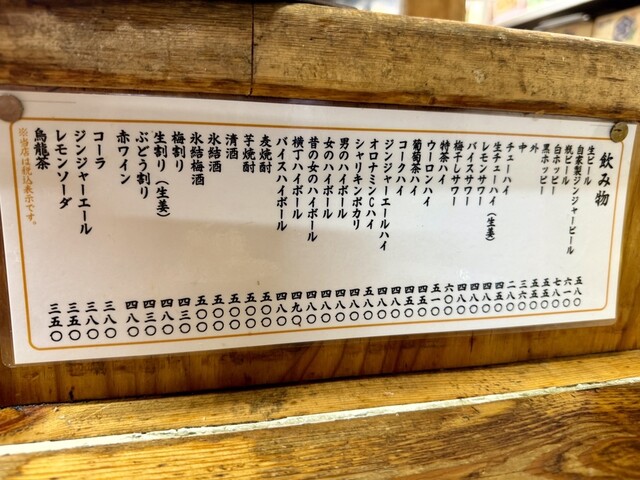 飲み物
生ビール 五八〇
自家製ジンジャービール 六一〇
瓶ビール 七八〇
白ホッピー 五五〇
黒ホッピー 五五〇
外
中
チューハイ
生チューハイ(生姜)
レモンサワー
バイスサワー
梅干しサワー
特茶ハイ
ウーロンハイ
葡萄茶ハイ
コークハイ
ジンジャーエールハイ
オロナミンCハイ
シャリキンポカリ
男のハイボール 四八〇
女のハイボール 四八〇
昔の女のハイボール 四八〇
横丁ハイボール 四九〇
バイスハイボール 四八〇
麦焼酎 五〇〇
芋焼酎 五〇〇
清酒 五〇〇
氷結酒 五〇〇
氷結梅酒 五〇〇
梅割り 四三〇
生割り(生姜) 四八〇
ぶどう割り 四三〇
赤ワイン 四八〇
コーラ 三八〇
ジンジャーエール 三八〇
レモンソーダ 三五〇
烏龍茶 三五〇
※当店は税込表示です。